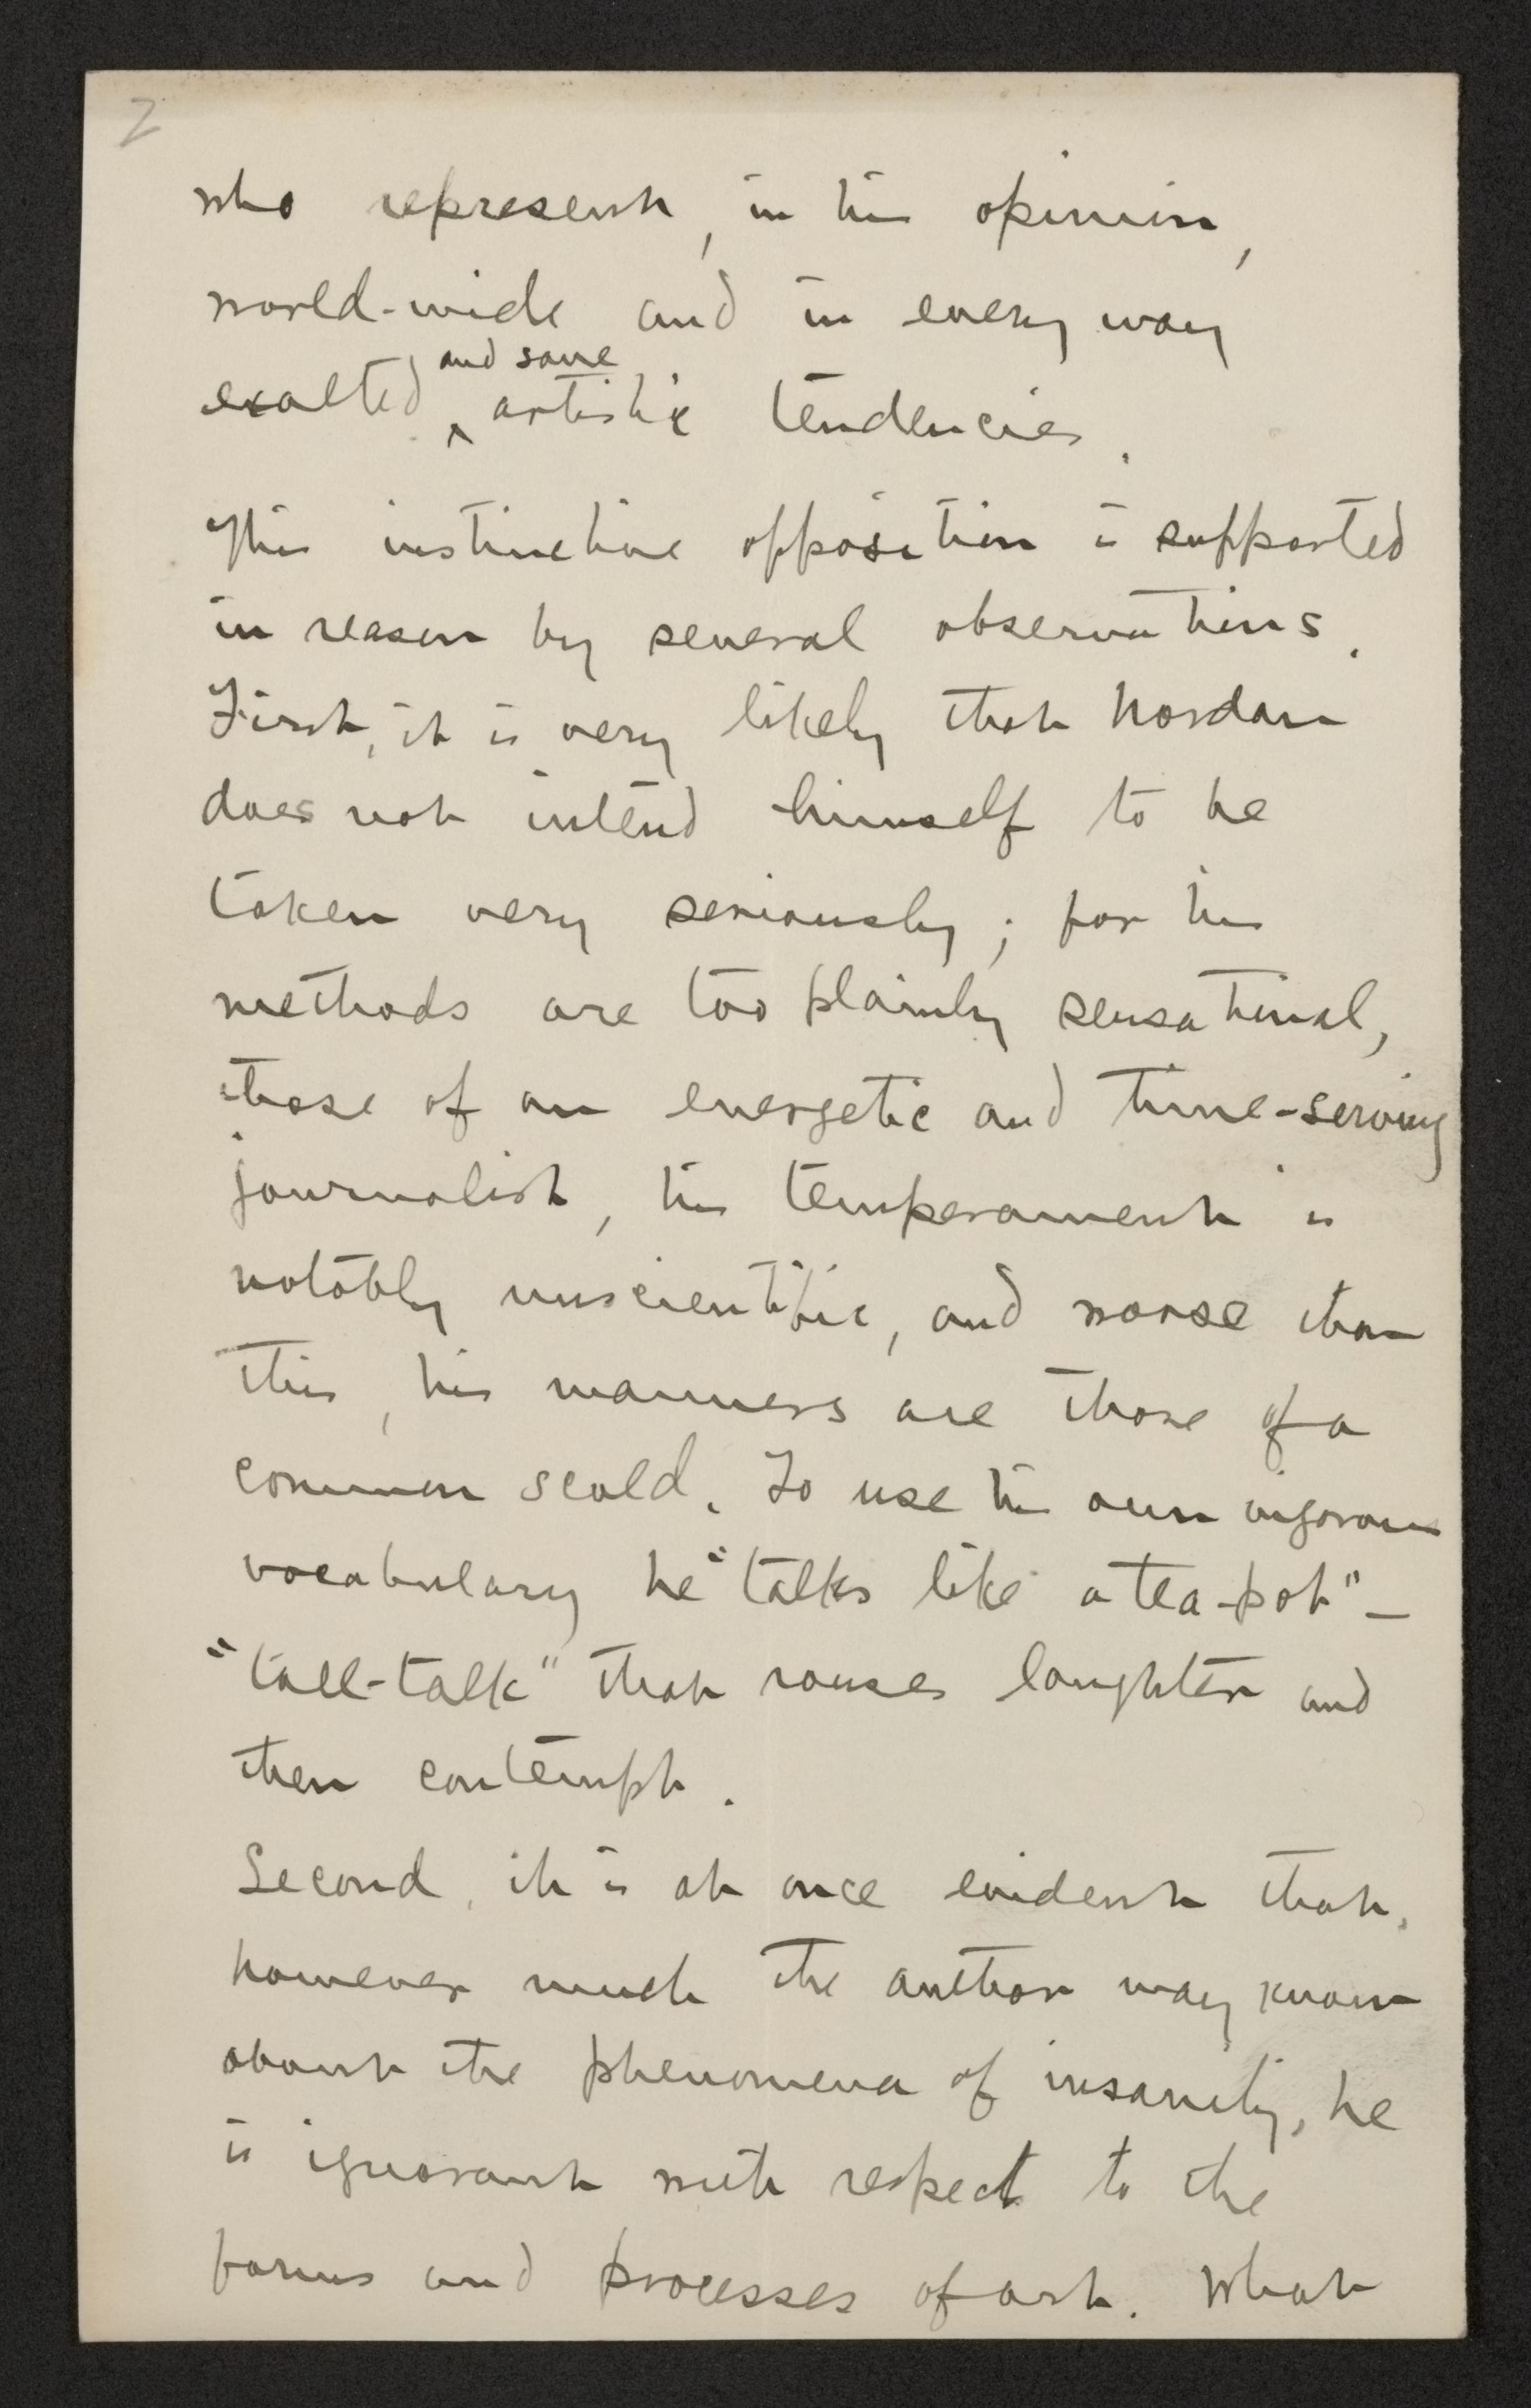 2
who represent, in his opinion,
world-wide and in every way
and sane
exalted ^ artistic tendencies.
This instinctive opposition is supported
in reason by several observations.
First, it is very likely that Nordau
does not intend himself to be
taken very seriously; for his
methods are too plainly sensational,
those of an energetic and time-serving
journalist, his temperament is
notably unscientific, and worse than
this, his manners are those of a
common scold. To use his own vigorous
vocabulary he "talks like a tea-pot" –
"tall-talk" that rouses laughter and
then contempt.
Second, it is at once evident that,
however much the author may know
about the phenomena of insanity, he
is ignorant with respect to the
forms and processes of art. What